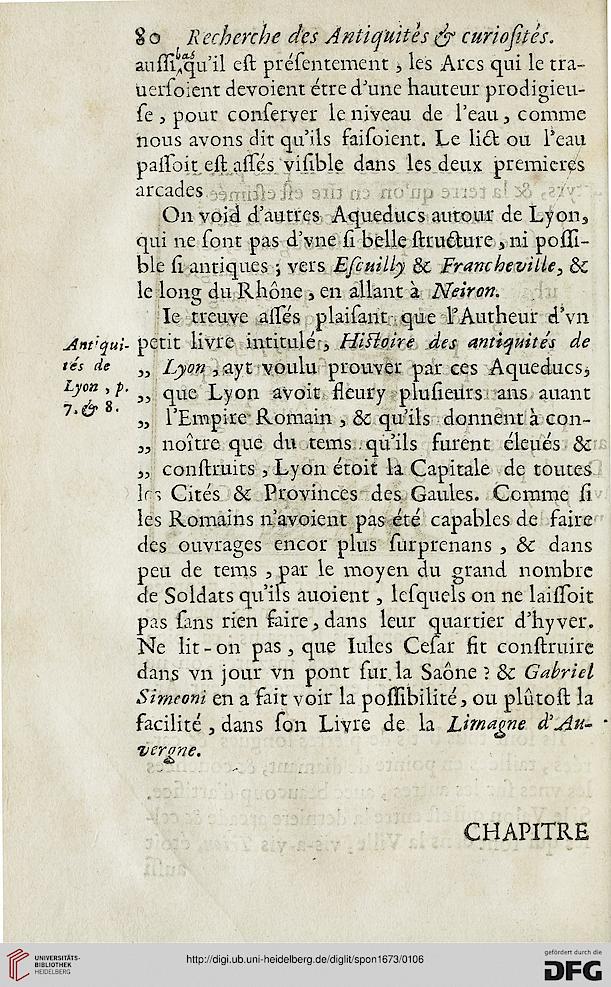 80 Recherche des Antiquités & curiosités.
bas
aussi qu'il est présentement, les Arcs qui le tra-
uersoient devoient étre d'une hauteur prodigieu-
se, pour conserver le niveau de l'eau, comme
nous avons dit qu'ils faisoient. Le lict ou l'eau
passoit est assés visible dans les deux premieres
arcades
On void d'autres Aqueducs autour de Lyon,
qui ne sont pas d'vne si belle structure, ni possi-
ble si antiques; vers Escuilly & Francheville, &
le long du Rhône, en allant à Neiron.
Ie treuve assés plaisant que l'Autheur d'vn
petit livre intitulé, Histoire des antiquités de
„ Lyon, ayt voulu prouver par ces Aqueducs,
„ que Lyon avoit fleury plusieurs ans auant
„ l'Empire Romain, & qu'ils donnent à con-
„ noître que du tems qu'ils furent éleués &
„ construits, Lyon étoit la Capitale de toutes
les Cités & Provinces des Gaules. Comme si
les Romains n'avoient pas été capables de faire
des ouvrages encor plus surprenans, & dans
peu de tems, par le moyen du grand nombre
de Soldats qu'ils auoient, lesquels on ne laissoit
pas sans rien faire, dans leur quartier d'hyver.
Ne lit-on pas, que Iules Cesar fit construire
dans vn jour vn pont sur la Saône ? & Gabriel
Simeoni en a fait voir la possibilité, ou plûtost la
facilité, dans son Livre de la Limagne d'Au-
vergne.
Antiqui-
tés de
Lyon, p.
7. & 8.
CHAPITRE
UNIVERSITÄTS-
BIBLIOTHEK
HEIDELBERG
http://digi.ub.uni-heidelberg.de/diglit/spon1673/0106
gefördert durch die
DFG